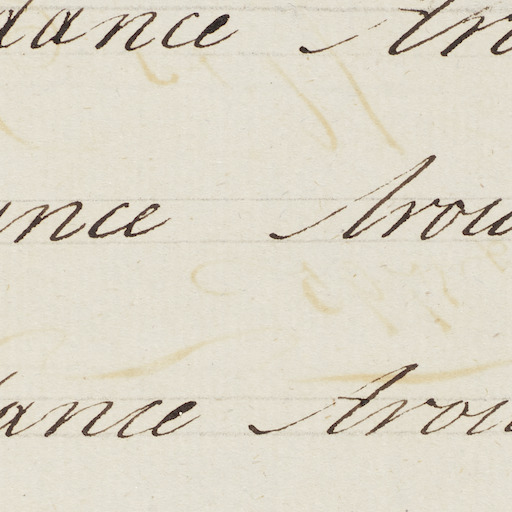 dance Aro
ance Arou
dance Arou